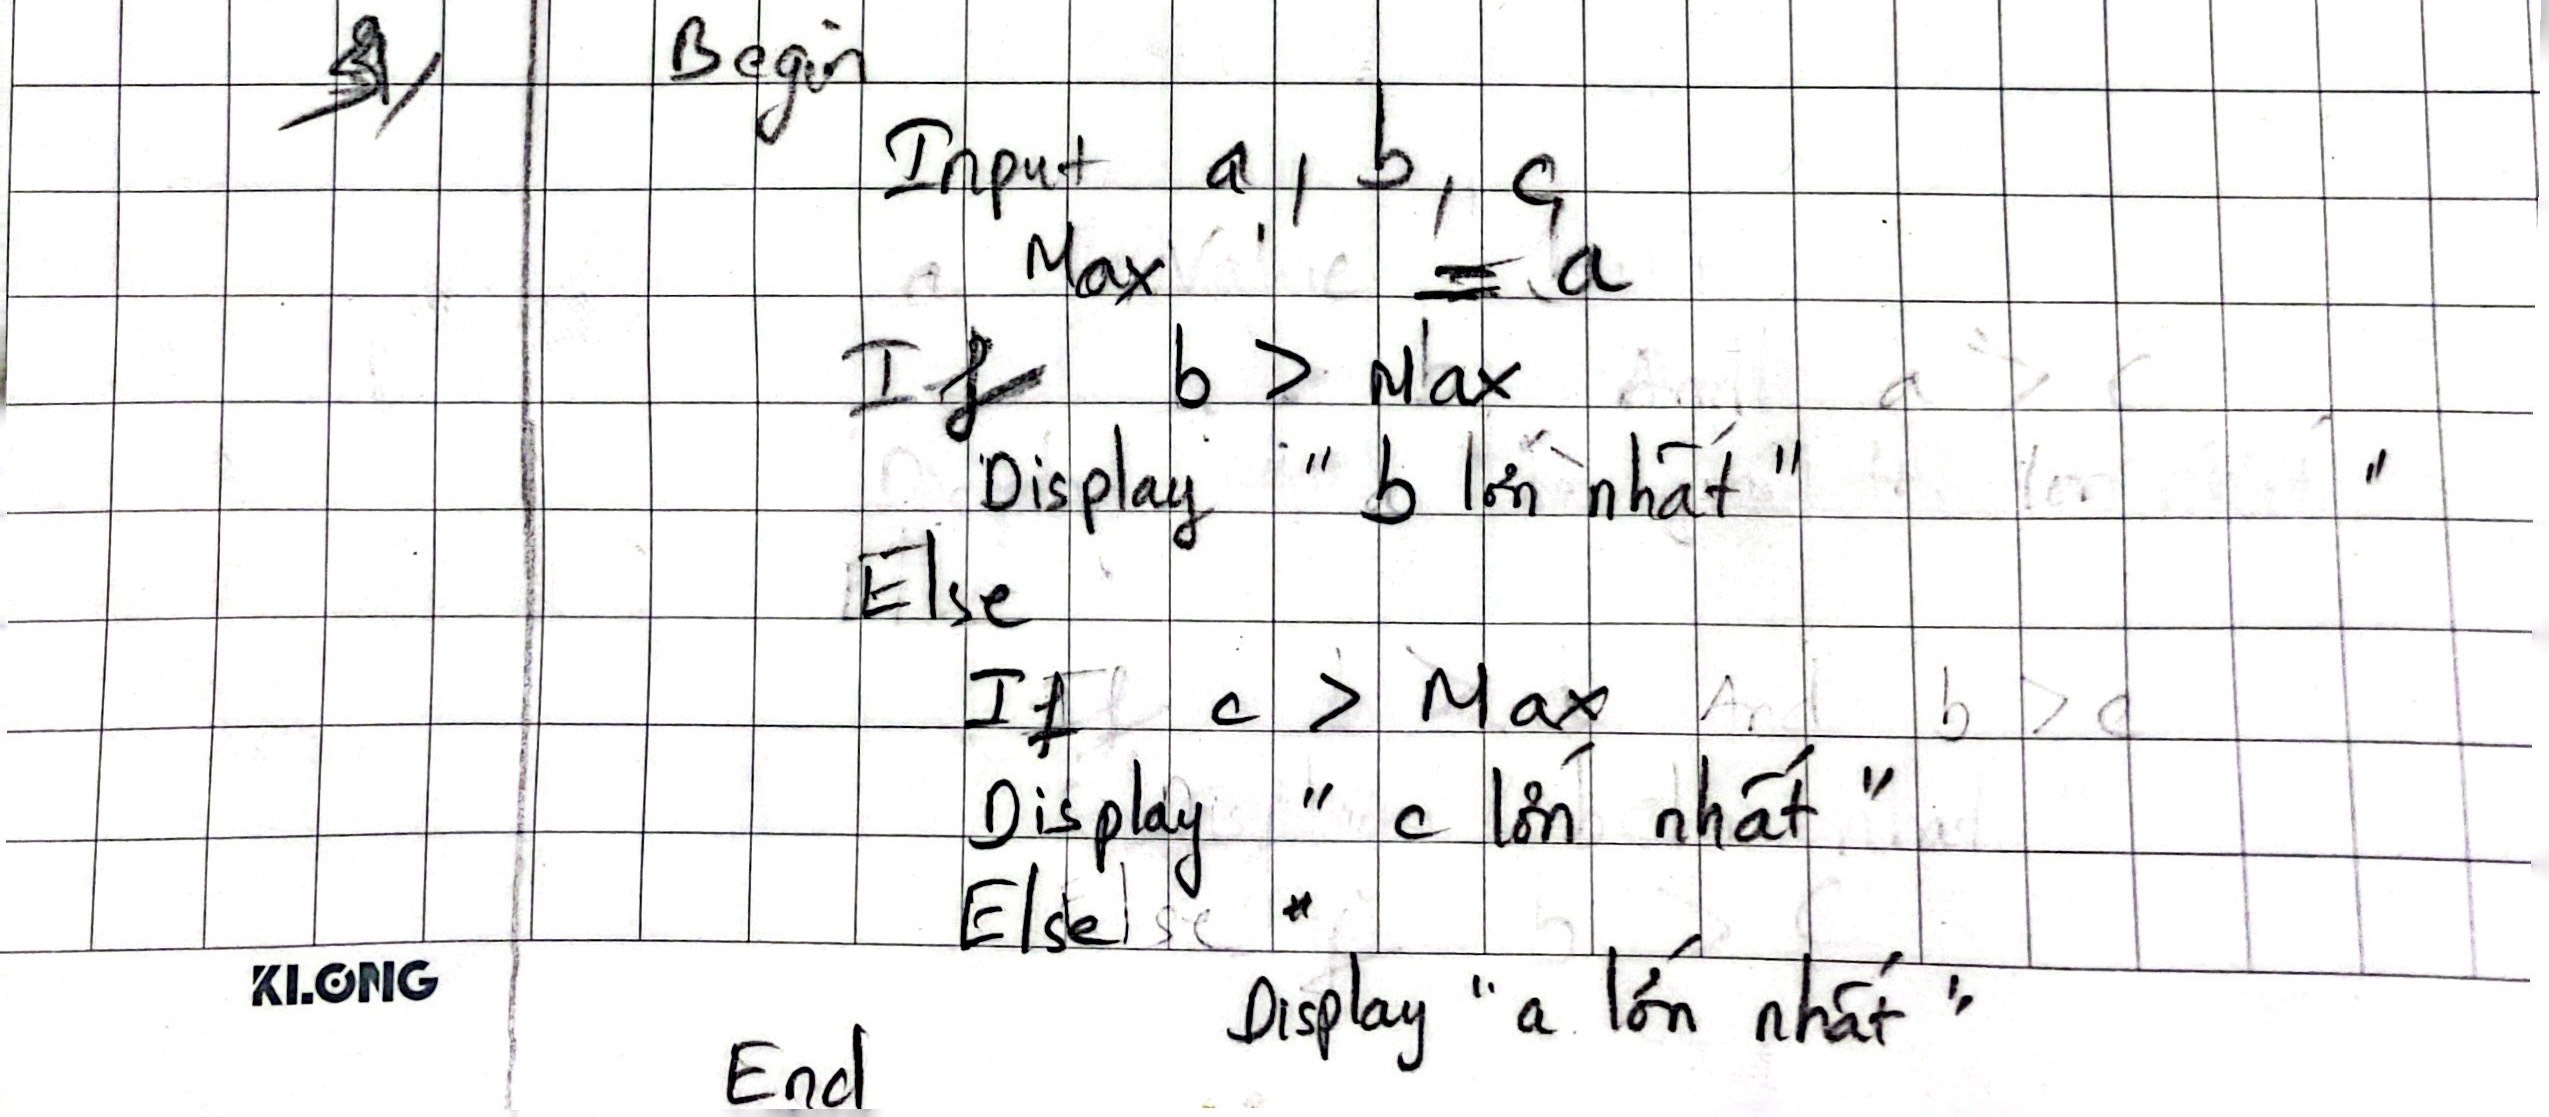 3/ Begin
Input a, b, c
Max = a
If b > Max
Display " b lớn nhất "
Else
If c > Max
Display " c lớn nhất "
Else
Display " a lớn nhất "
End
KLONG